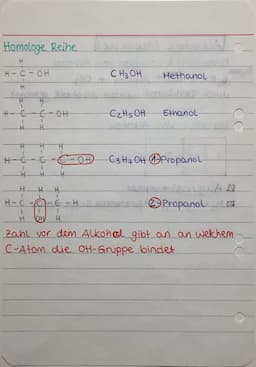 Homologe Reihe
H
H - C - OH CH3OH Methanol
H
H H
H - C - C - OH C2H5OH Ethanol
H H
H H H
H - C - C - C - OH C3H7OH 1 Propanol
H H H
H H H
H - C - C - C - H 2 Propanol
H OH H
Zahl vor dem Alkohol gibt an an welchem
C-Atom die OH-Gruppe bindet